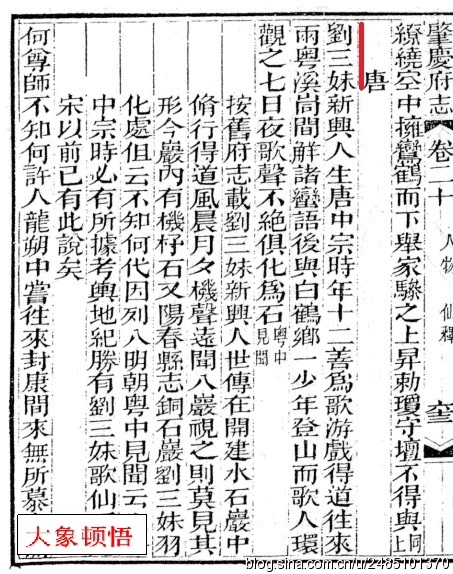 肇慶府志 卷二十 人物 仙釋
繚繞空中擁鸞鶴而下舉家驂之上昇勅瓊守壇不得與同上
唐
劉三妹新興人生唐中宗時年十二善爲歌游戲得道往來
兩粤溪峝間觧諸蠻語後與白鶴鄉一少年登山而歌人環
觀之七日夜歌聲不絕俱化爲石粤中見聞
按舊府志載劉三妹新興人世傳在開建水石巖中
脩行得道風晨月夕機聲遠聞入巖視之則莫見其
形今巖內有機杼石又陽春縣志銅石巖劉三妹羽
化處但云不知何代因列入明朝粤中見聞云
中宗時必有所據考輿地紀勝有劉三妹歌仙
宋以前已有此說矣
何尊師不知何許人龍朔中嘗往來封康間來無所慕
大象顿悟
blog.sina.com.cn/u/2485101370